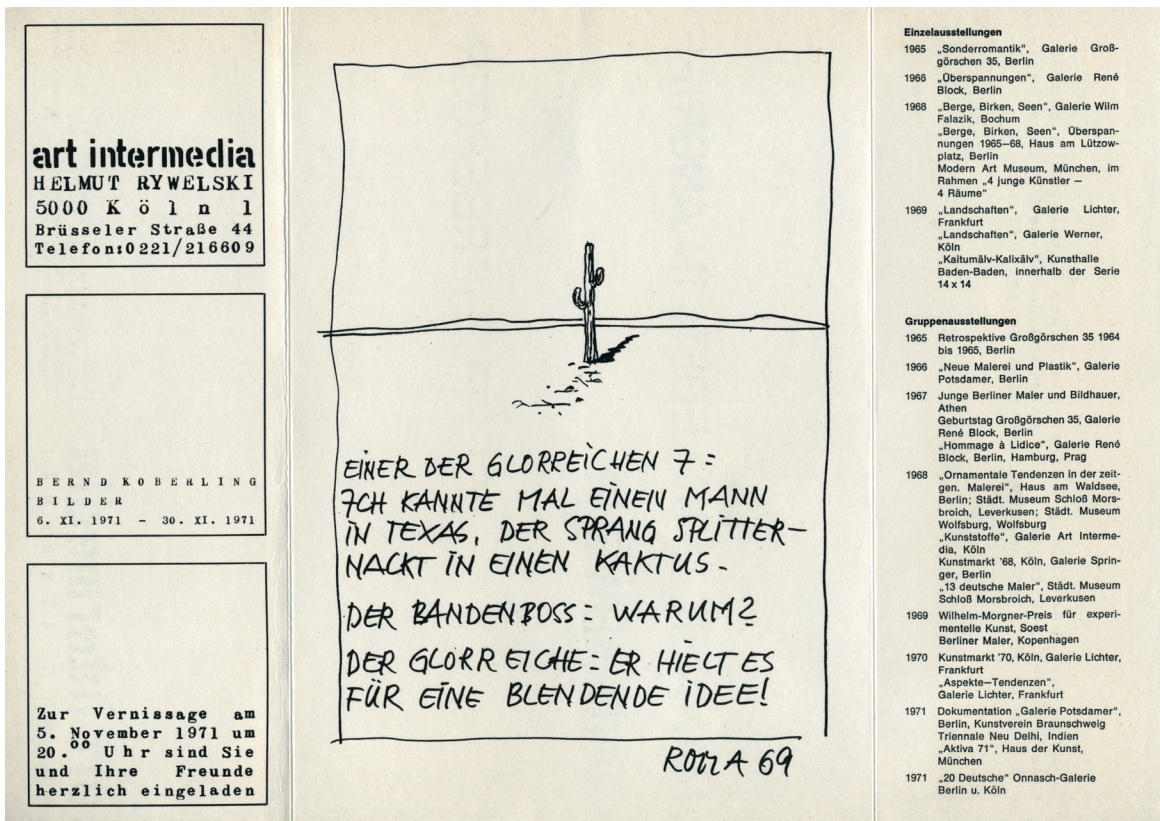 art intermedia
HELMUT RYWELSKI
5000 Köln 1
Brüsseler Straße 44
Telefon:0221/216609
BERND KOBERLING
BILDER
6. XI. 1971 – 30. XI. 1971
Zur Vernissage am
5. November 1971 um
20.⁰⁰ Uhr sind Sie
und Ihre Freunde
herzlich eingeladen
EINER DER GLORREICHEN 7:
ICH KANNTE MAL EINEN MANN
IN TEXAS, DER SPRANG SPLITTER–
NACKT IN EINEN KAKTUS.
DER BANDENBOSS: WARUM?
DER GLORREICHE: ER HIELT ES
FÜR EINE BLENDENDE IDEE!
69
Einzelausstellungen
1965 „Sonderromantik“, Galerie Groß-
görschen 35, Berlin
1966 „Überspannungen“, Galerie René
Block, Berlin
1968 „Berge, Birken, Seen“, Galerie Wilm
Falazik, Bochum
„Berge, Birken, Seen“, Überspan-
nungen 1965–68, Haus am Lützow-
platz, Berlin
Modern Art Museum, München, im
Rahmen „4 junge Künstler –
4 Räume“
1969 „Landschaften“, Galerie Lichter,
Frankfurt
„Landschaften“, Galerie Werner,
Köln
„Kaitumälv-Kalixälv“, Kunsthalle
Baden-Baden, innerhalb der Serie
14 x 14
Gruppenausstellungen
1965 Retrospektive Großgörschen 35 1964
bis 1965, Berlin
1966 „Neue Malerei und Plastik“, Galerie
Potsdamer, Berlin
1967 Junge Berliner Maler und Bildhauer,
Athen
Geburtstag Großgörschen 35, Galerie
René Block, Berlin
„Hommage à Lidice“, Galerie René
Block, Berlin, Hamburg, Prag
1968 „Ornamentale Tendenzen in der zeit-
gen. Malerei“, Haus am Waldsee,
Berlin; Städt. Museum Schloß Mors-
broich, Leverkusen; Städt. Museum
Wolfsburg, Wolfsburg
„Kunststoffe“, Galerie Art Interme-
dia, Köln
Kunstmarkt '68, Köln, Galerie Sprin-
ger, Berlin
„13 deutsche Maler“, Städt. Museum
Schloß Morsbroich, Leverkusen
1969 Wilhelm-Morgner-Preis für experi-
mentelle Kunst, Soest
Berliner Maler, Kopenhagen
1970 Kunstmarkt '70, Köln, Galerie Lichter,
Frankfurt
„Aspekte–Tendenzen“,
Galerie Lichter, Frankfurt
1971 Dokumentation „Galerie Potsdamer“,
Berlin, Kunstverein Braunschweig
Triennale Neu Delhi, Indien
„Aktiva 71“, Haus der Kunst,
München
1971 „20 Deutsche“ Onnasch-Galerie
Berlin u. Köln